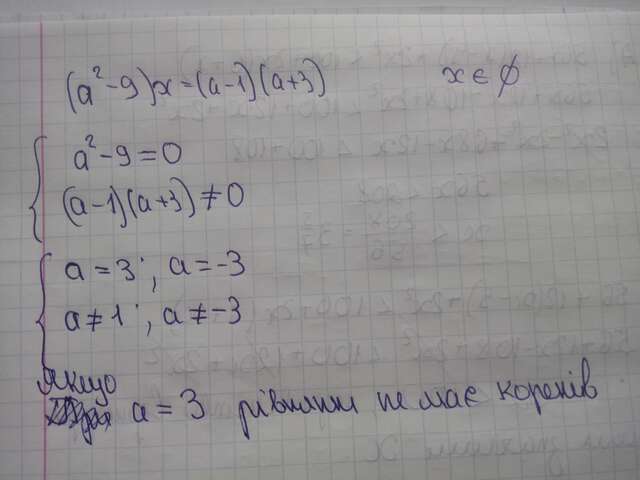 (a²-9)x=(a-1)(a+3) x∈∅
a²-9=0
(a-1)(a+3)≠0
a=3; a=-3
a≠1; a≠-3
якщо
a=3 рівняння не має коренів